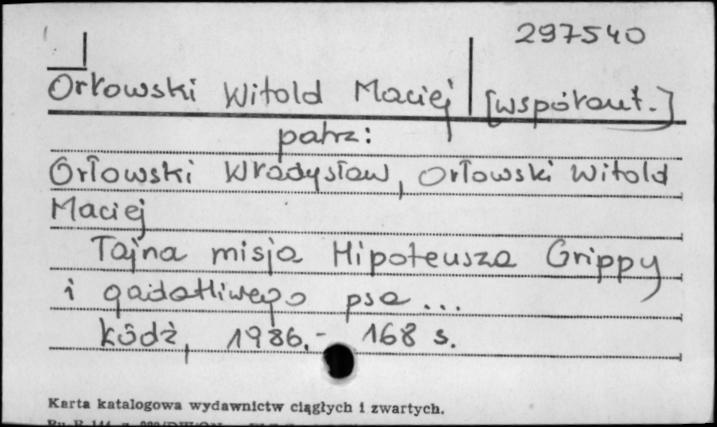 297540
Orłowski Witold Maciej [współaut.]
patrz:
Orłowski Władysław, Orłowski Witold
Maciej
Tajna misja Hipoteusza Grippy
i gadatliwego psa ...
Łódź, 1986.- 168 s.
Karta katalogowa wydawnictw ciągłych i zwartych.